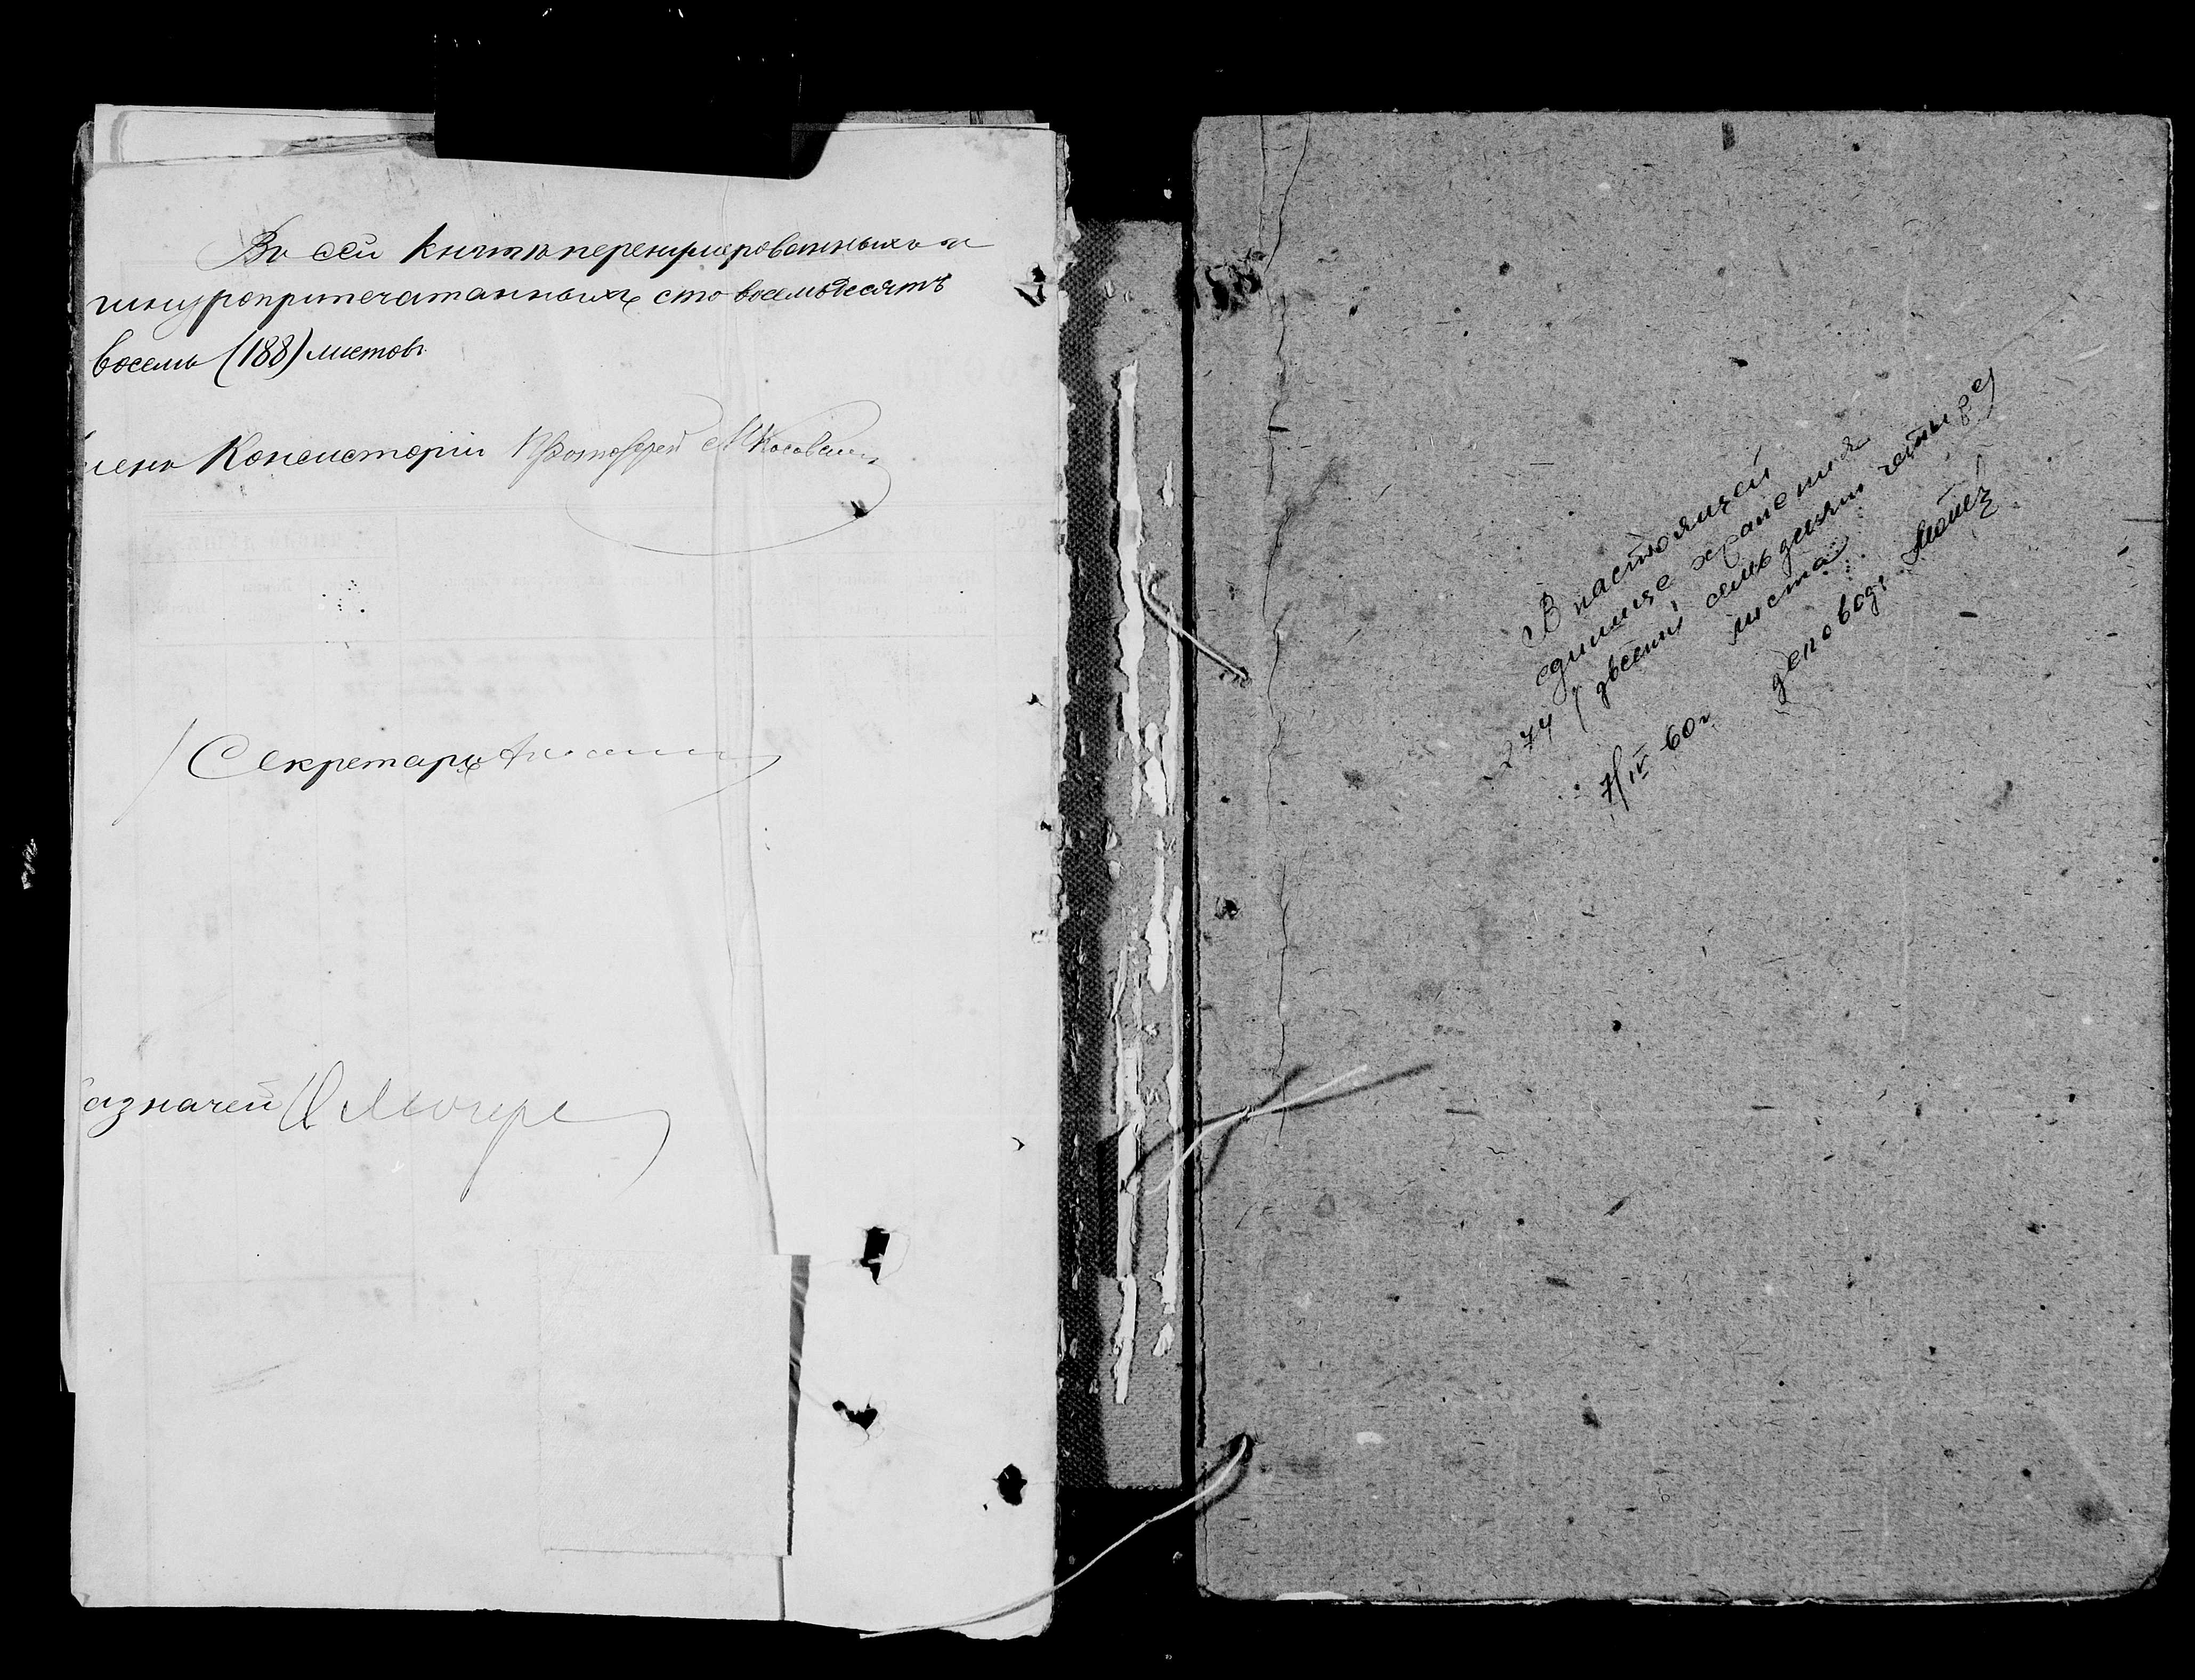 Въ сей книгѣ перенумерованныхъ и
шнуроприпечатанныхъ сто восемьдесятъ
восемь (188) листовъ
членъ Консисторіи Протоіерей
Секретарь
азначей
В настоящей
единице хранения
274 (двести семьдесят четыре)
листа
7/IV-60г деловод.